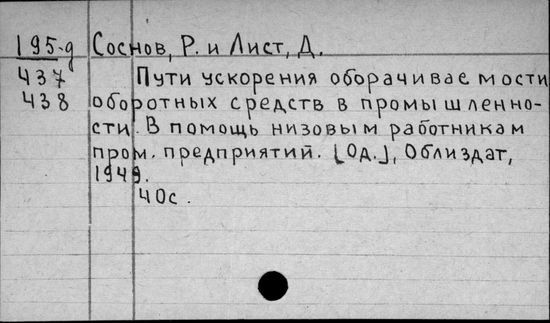 195-д Соснов, Р. и Лист, Д.
437 Пути ускорения оборачиваемости
438 оборотных средств в промышленно-
сти. В помощь низовым работникам
пром. предприятий. [Од.], Облиздат,
1949.
40с.